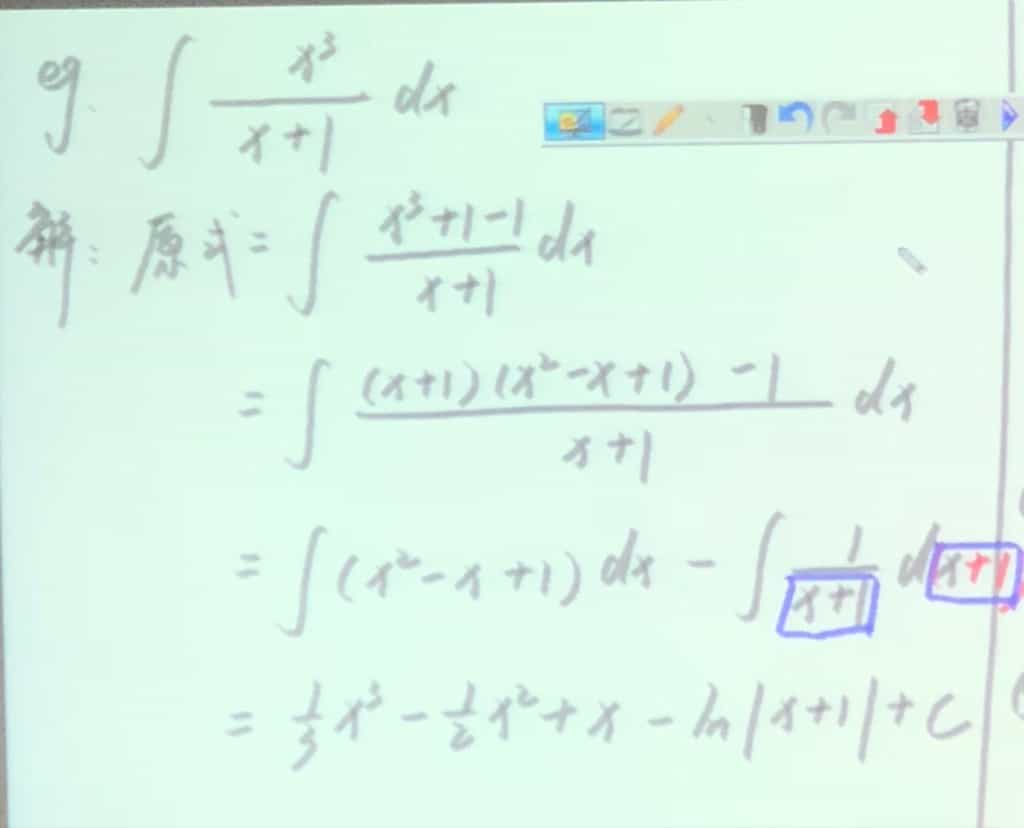 eg. ∫ x³/(x+1) dx
解: 原式 = ∫ (x³+1-1)/(x+1) dx
= ∫ ((x+1)(x²-x+1) -1)/(x+1) dx
= ∫ (x²-x+1) dx - ∫ 1/(x+1) dx+1
= 1/3 x³ - 1/2 x² + x - ln|x+1| + C